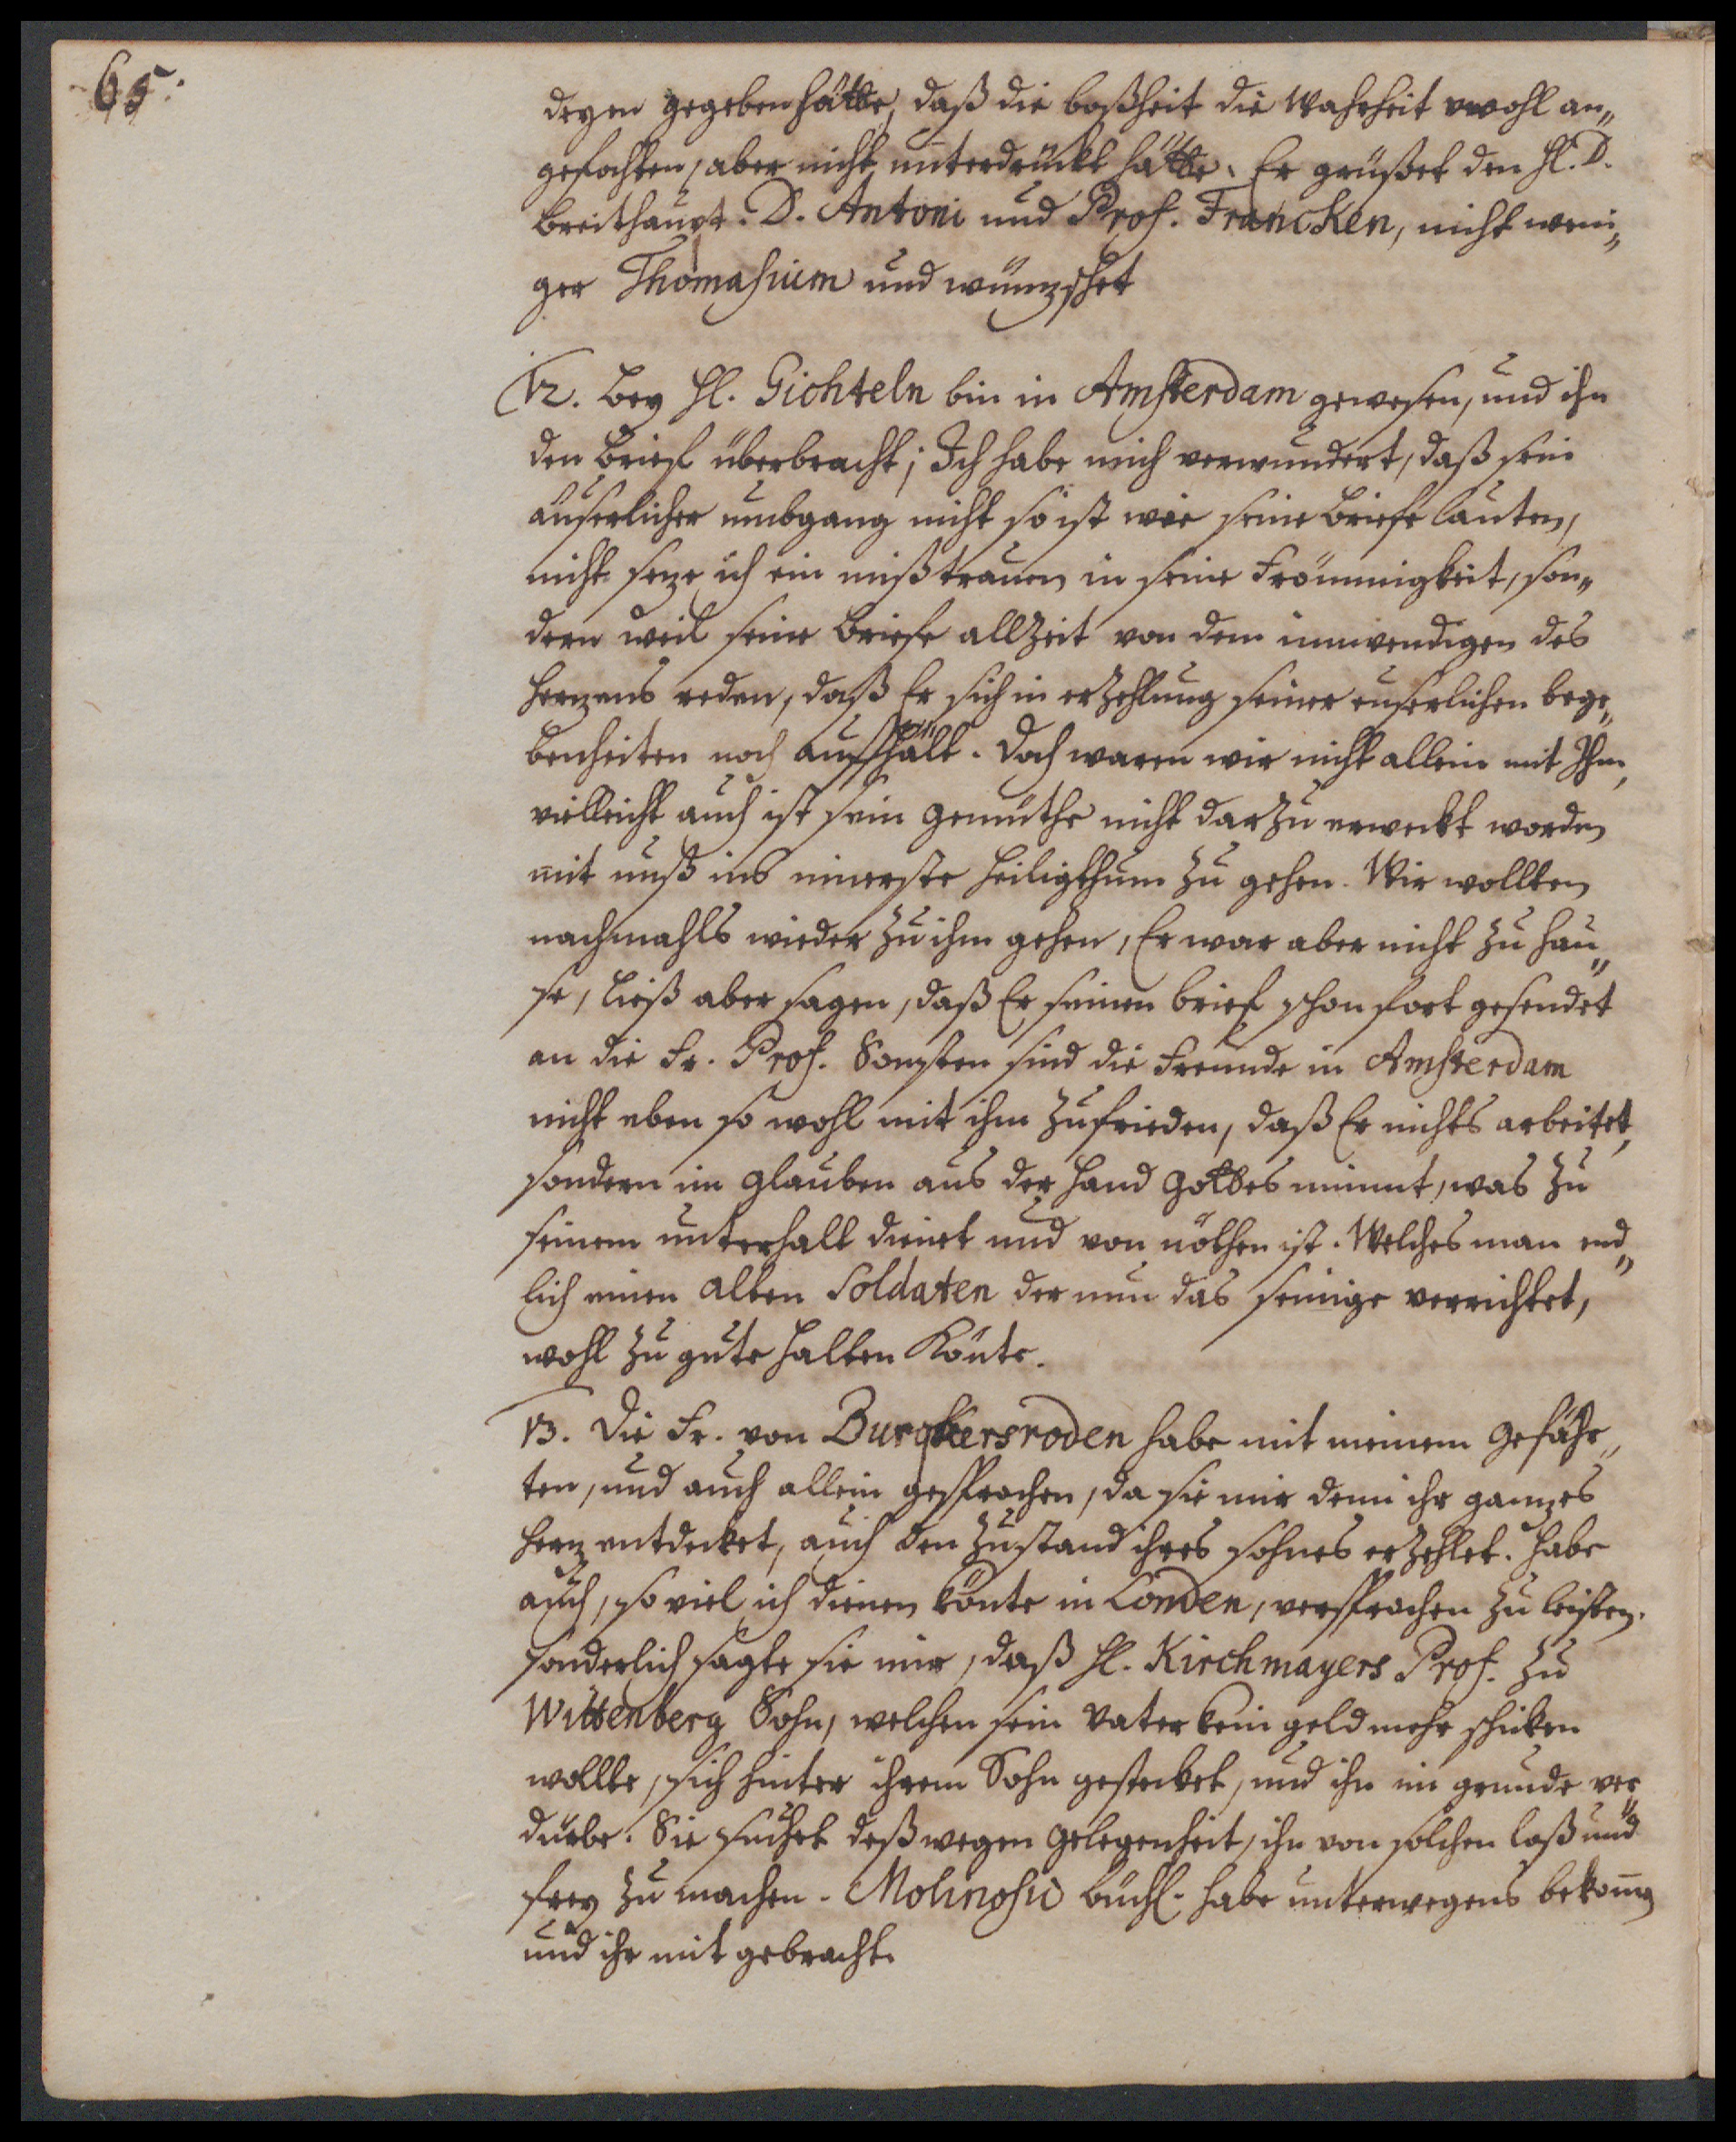 65.
degen gegeben hätte, daß die boßheit die Wahrheit wohl an„
gefochten, aber nicht unterdrückt hätte. Er grüßet den H. D.
Breithaupt. D. Antoni und Prof. Francken, nicht weni„
ger Thomasium und wünzschet
12. Bey H. Gichteln bin in Amsterdam gewesen, und ihn
den Brief überbracht; Ich habe mich verwundert, daß sein
äuserlicher umbgang nicht so ist wie seine Briefe lauten,
nicht seze ich ein mißtrauen in seine Frömmigkeit, son„
dern weil seine Briefe allzeit von dem innwendigen des
Herzens reden, daß Er sich in erzehlung seiner euserlichen bege„
benheiten noch aufhält. Doch waren wir nicht allein mit Ihm,
vielleicht auch ist sein gemüthe nicht darzu erweckt worden
mit unß ins innerste Heiligthum zu gehen. Wir wollten
nachmahls wieder zu ihm gehen, Er war aber nicht zu hau„
se, ließ aber sagen, daß Er seinen brief schon fort gesendet
an die Fr. Prof. Sonsten sind die Freunde in Amsterdam
nicht eben so wohl mit ihm zufrieden, daß Er nichts arbeitet,
sondern im glauben aus der Hand Gottes nimmt, was zu
seinem unterhalt dienet und von nöthen ist. Welches man end„
lich einen alten Soldaten der nun das seinige verrichtet,
wohl zu gute halten Könte.
13. Die Fr. von Burgkersroden habe mit meinem Gefähr„
ten, und auch allein gesprochen, da sie mir denn ihr ganzes
Herz entdecket, auch den Zustand ihres sohnes erzehlet. Habe
auch, so viel ich dienen könte in Londen, versprochen zu leisten.
sonderlich sagte sie mir, daß H. Kirchmayers Prof. zu
Wittenberg Sohn, welchen sein Vater kein geld mehr schicken
wollte, sich hinter ihrem Sohn gestecket, und ihn im grunde ver„
dürbe. Sie suchet deßwegen gelegenheit, ihn von solchen loß und
frey zu machen. Molinosii büchl. habe unterwegens bekom̅en
und ihr mit gebracht.